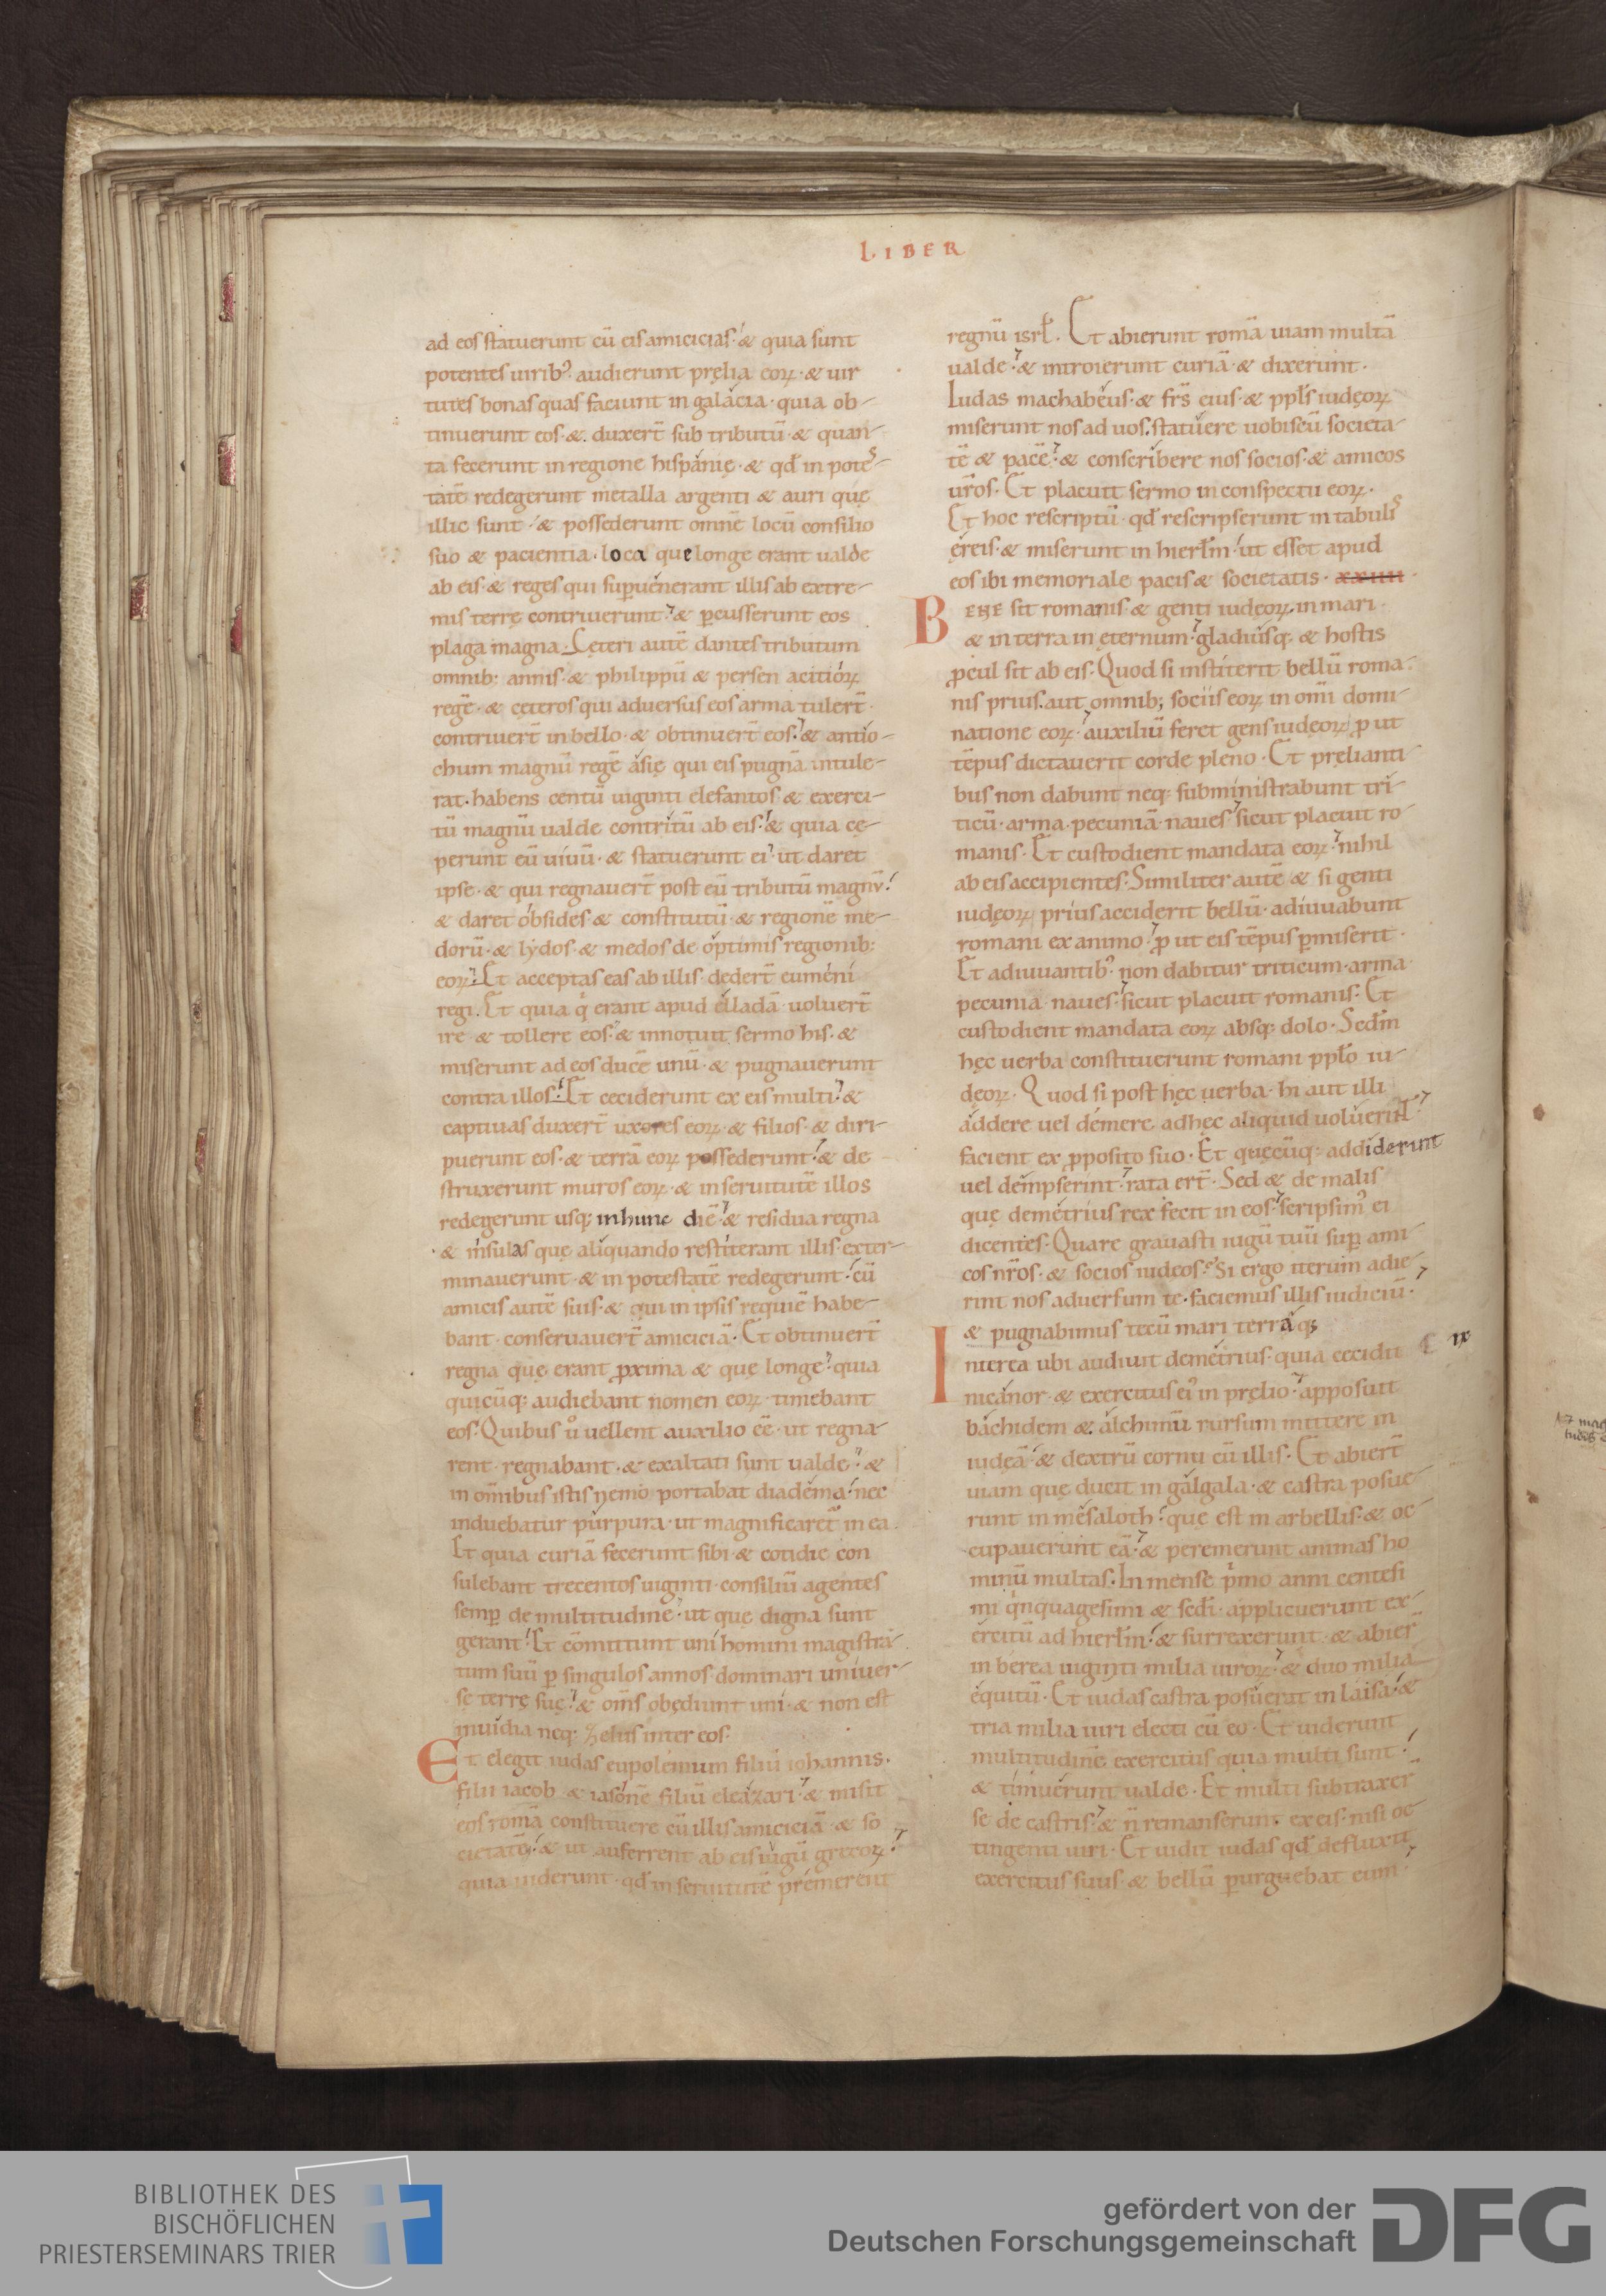 LIBER
ad eos statuerunt cū eis amicicias · & quia sunt
potentes uiribꝰ. audierunt pręlia eoꝝ · & uir
tutes bonas quas faciunt in galacia · quia ob-
tinuerunt eos · & duxert̄ sub tributū · & quan-
ta fecerunt in regione hispanię · & qđ in potes-
tatē redegerunt metalla argenti & auri quę
illic sunt · & possederunt omnē locū consilio
suo & pacientia · loca que longe erant ualde
ab eis · & reges qui suꝑuenerant illis ab extre-
mis terrę contriuerunt · & ꝑcusserunt eos
plaga magna · Cęteri autē dantes tributum
omnib: annis · & philippū & persen acitioꝝ
regē · & cęteros qui aduersus eos arma tulert̄ ·
contriuert̄ in bello · & obtinuert̄ eos · & antio-
chum magnū regē asię qui eis pugnā intule-
rat · habens centū uiginti elefantos & exerci-
tū magnū ualde contritū ab eis · & quia cę-
perunt eū uiuū · & statuerunt ei · ut daret
ipse · & qui regnauert̄ post eū tributū magnū ·
& daret obsides · & constitutū · & regionē me-
dorū · & lydos · & medos de optimis regionib:
eoꝝ · Et acceptas eas ab illis · dedert̄ eumeni
regi · Et quia q̇ erant apud elladā · uoluert̄
ire & tollere eos · & innotuit sermo his · &
miserunt ad eos ducē unū · & pugnauerunt
contra illos · Et ceciderunt ex eis multi · &
captiuas duxert̄ uxores eoꝝ · & filios · & diri-
puerunt eos · & terrā eoꝝ possederunt · & de
struxerunt muros eoꝝ · & in seruitutē illos
redegerunt usq; in hunc diē · & residua regna
& insulas quę aliquando restiterant illis · exter-
minauerunt · & in potestatē redegerunt · cū
amicis autē suis · & qui in ipsis requiē habe-
bant · conseruauert̄ amiciciā · Et obtinuert̄
regna quę erant ꝓxima & quę longe · quia
quicūq; audiebant nomen eoꝝ · timebant
eos · Quibus ů uellent auxilio eē · ut regna-
rent · regnabant · & exaltati sunt ualde · &
in om̄ibus istis nemo portabat diadema · nec
induebatur purpura · ut magnificaret̄ in ea ·
Et quia curiā fecerunt sibi · & cotidie con
sulebant trecentos uiginti · consiliū agentes
semꝑ de multitudine · ut quę digna sunt
gerant · Et cōmittunt uni homini magistra-
tum suū ꝑ singulos annos · dominari uniuer-
sę terrę suę · & om̄s obędiunt uni · & non est
inuidia neq; zelus inter eos ·
Et elegit iudas eupolemum filiū iohannis ·
filii iacob · & iasonē filiū eleazari · & misit
eos romā constituere cū illis amiciciā · & so
cietatē · & ut auferrent ab eis iugū grecoꝝ ·
quia uiderunt · qđ in seruitutē premerent
regnū isrł · Et abierunt romā uiam multā
ualde · & introierunt curiā · & dixerunt ·
Iudas machabeus · & frs̄ eius · & ppłs iudęoꝝ
miserunt nos ad uos · statuere uobiscū societa-
tē & pacē · & conscribere nos socios · & amicos
ur̄os · Et placuit sermo in conspectu eoꝝ ·
Et hoc rescriptū · qđ rescripserunt in tabulis
ęreis · & miserunt in hierłm · ut esset apud
eos ibi memoriale pacis & societatis · xxiiii ·
BENE sit romanis · & genti iudęoꝝ · in mari ·
& in terra in ęternum · gladiusq; & hostis
ꝓcul sit ab eis · Quod si institerit bellū roma-
nis prius · aut omnib; sociis eoꝝ in om̄i domi-
natione eoꝝ · auxiliū feret gens iudęoꝝ ꝓ ut
tēpus dictauerit corde pleno · Et pręlianti-
bus non dabunt neq; subministrabunt tri-
ticū · arma · pecuniā · naues · sicut placuit ro
manis · Et custodient mandata eoꝝ · nihil
ab eis accipientes · Similiter autē & si genti
iudęoꝝ prius acciderit bellū · adiuuabunt
romani ex animo · ꝓ ut eis tēpus ꝑmiserit ·
Et adiuuantibꝰ non dabitur triticum · arma
pecunia · naues · sicut placuit romanis · Et
custodient mandata eoꝝ absq; dolo · Sedm̄
hęc uerba constituerunt romani ppło iu-
dęoꝝ · Quod si post hęc uerba · hi aut illi
addere uel demere adhęc aliquid uoluerint ·
facient ex ꝓposito suo · Et quęcūq; addiderint
uel dempserint · rata ert̄ · Sed & de malis
quę demetrius rex fecit in eos · scripsimꝰ ei
dicentes · Quare grauasti iugū tuū suꝑ ami-
cos nr̄os · & socios iudeos · Si ergo iterum adie-
rint nos aduersum te · faciemus illis iudiciū ·
& pugnabimus tecū mari terraq;
Interea ubi audiuit demetrius · quia cecidit
ix
nicanor · & exercitus eiꝰ in pręlio · apposuit
bachidem & alchimū rursum mittere in
iudęā · & dextrū cornu cū illis · Et abiert̄
uiam quę ducit in galgala · & castra posue-
runt in mesaloth · quę est in arbellis · & oc-
cupauerunt eā · & peremerunt animas ho
minū multas · In mense p̍mo anni centesi
mi q̍nquagesimi & scđi · applicuerunt ex-
ercitū ad hierłm · & surrexerunt · & abier̄
in berea uiginti milia uiroꝝ · & duo milia
equitū · Et iudas castra posuerat in laisa · &
tria milia uiri electi cū eo · Et uiderunt
multitudinē exercitus quia multi sunt ·
& timuerunt ualde · Et multi subtraxer̄
se de castris · & n̄ remanserunt ex eis · nisi oc-
tingenti uiri · Et uidit iudas qđ defluxit
exercitus suus · & bellū ꝑurguebat eum ·
BIBLIOTHEK DES
BISCHÖFLICHEN
PRIESTERSEMINARS TRIER
gefördert von der
Deutschen Forschungsgemeinschaft
DFG